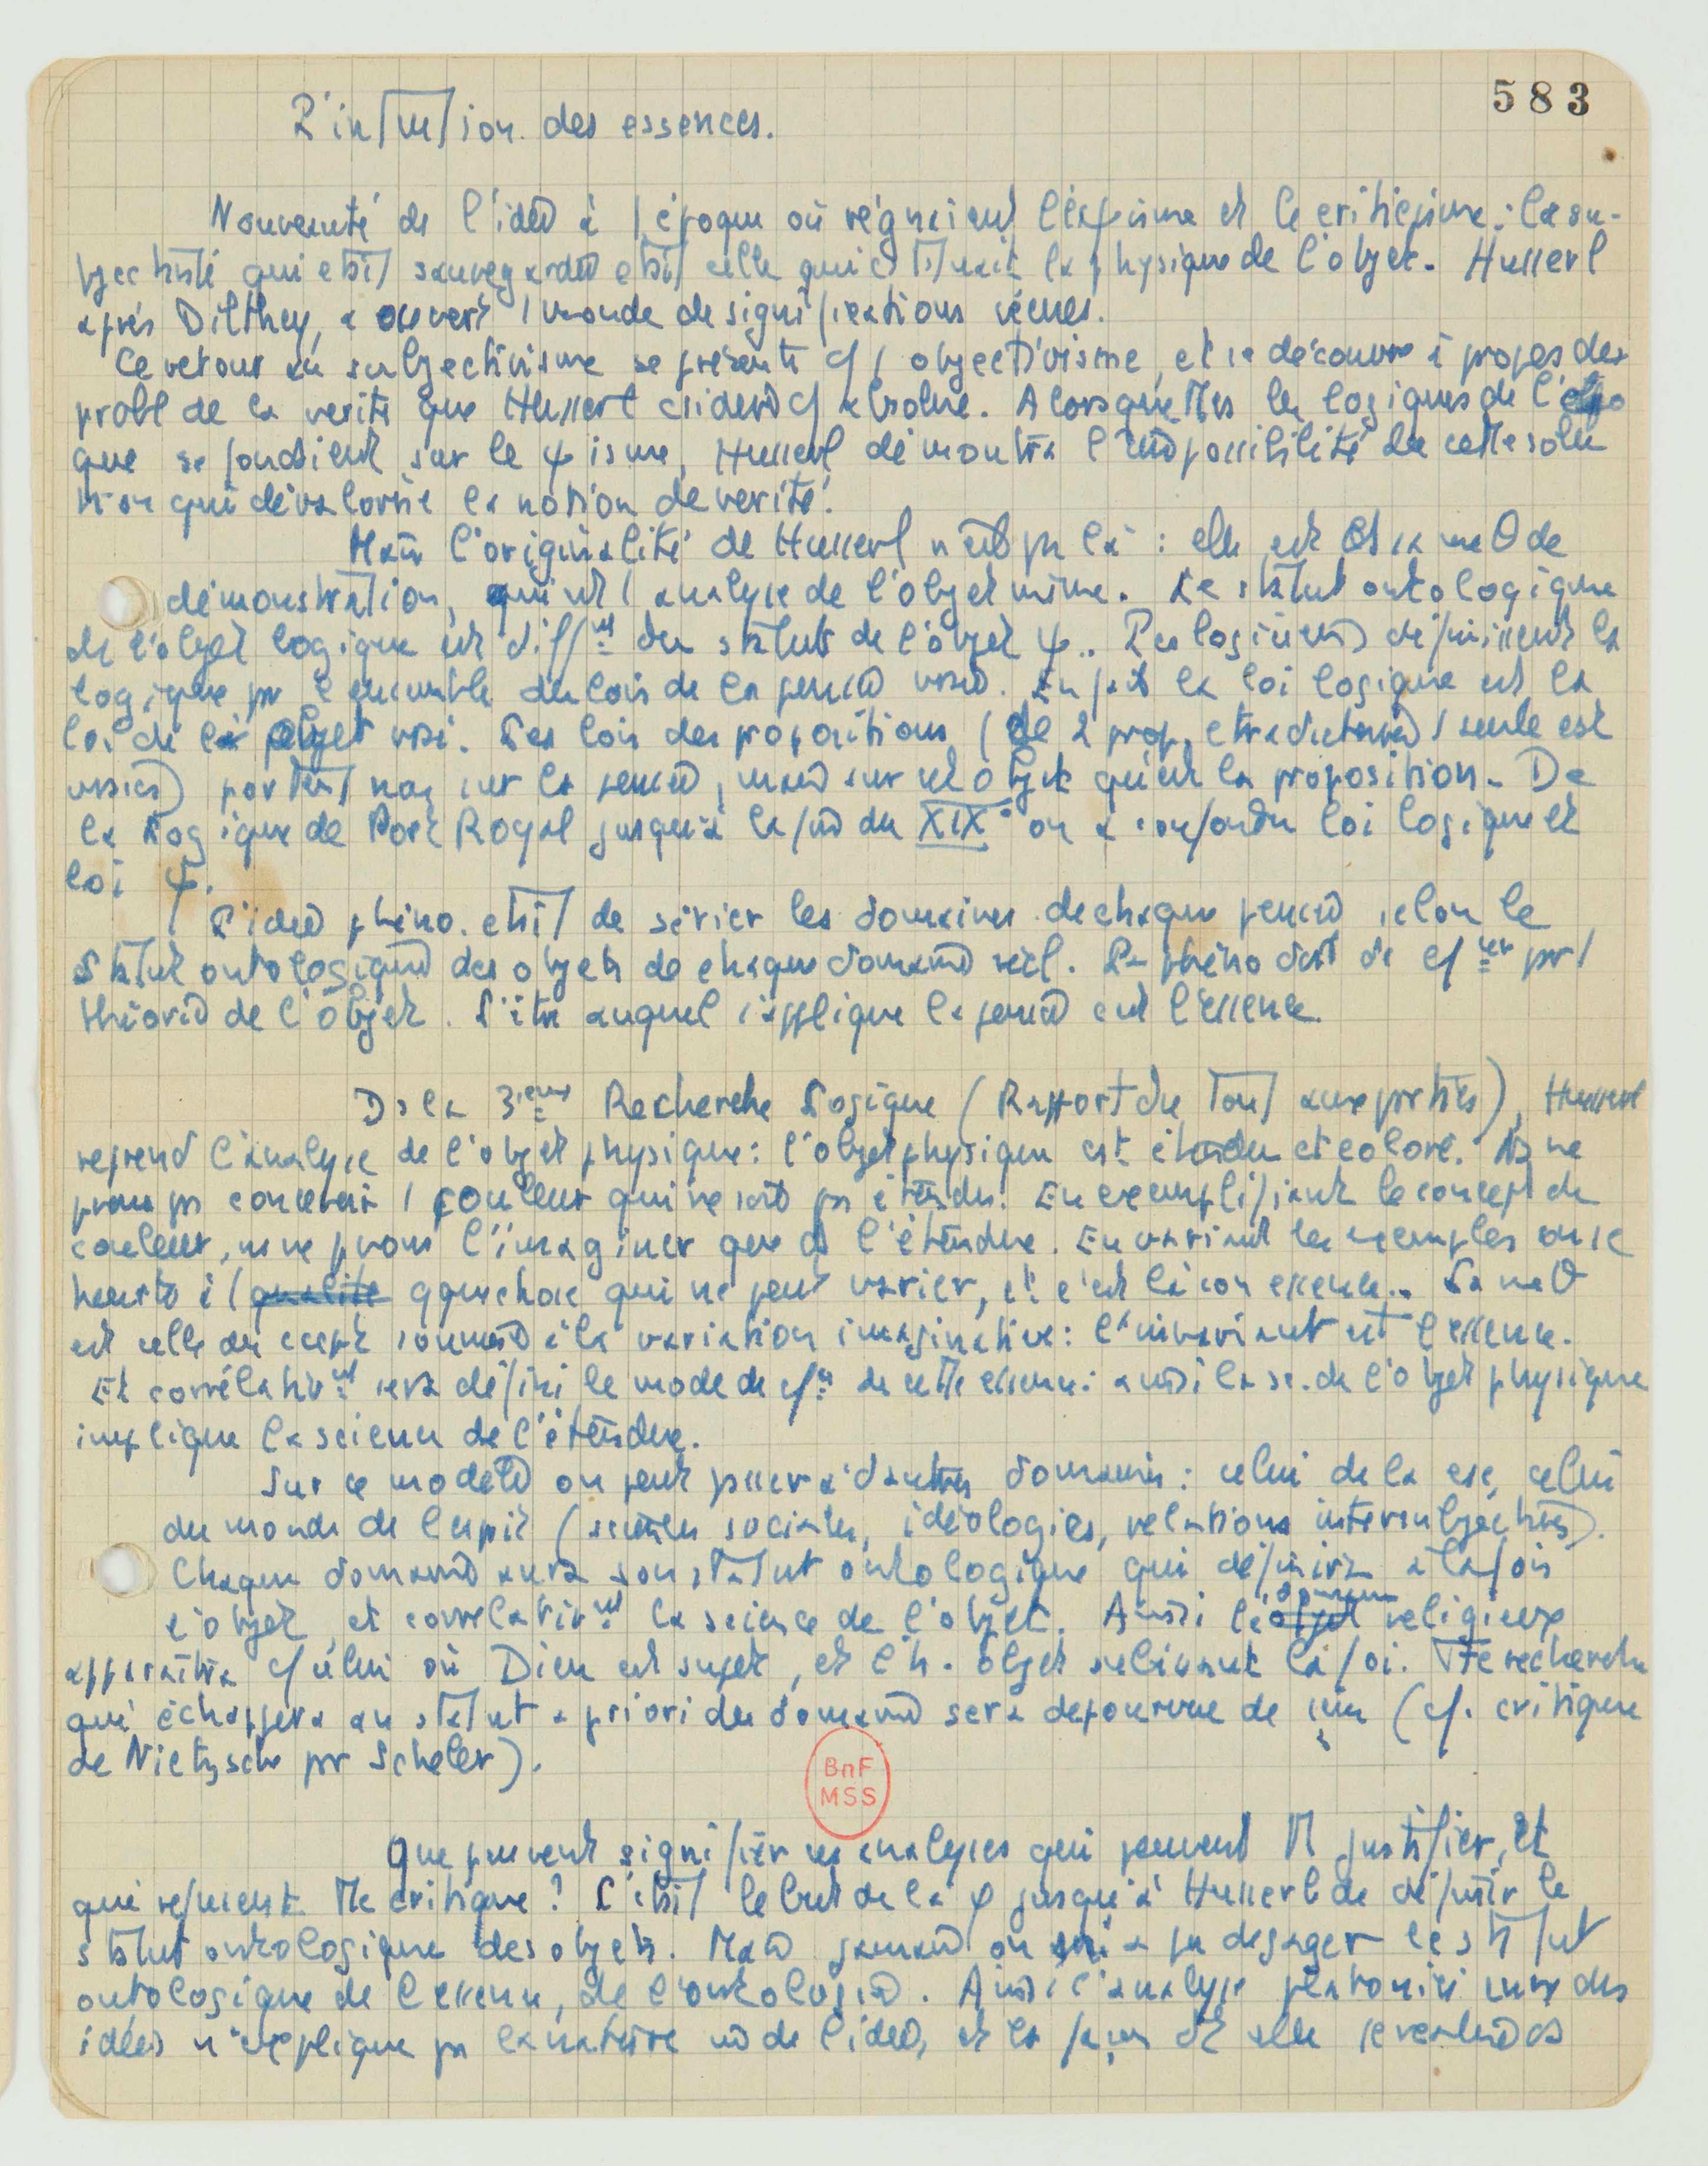 583
L'intuition des essences.
Nouveauté de l'idée à l'époque où régnaient l' et le criticisme : la su-
bjectivité qui était sauvegardée était celle qui la physique de l'objet. Husserl
après Dilthey, a ouvert 1 monde de significations vécues.
Ce retour au subjectivisme se présente cf 1 objectivisme, et se découvre à propos des
probl de la vérité que Husserl csidère cf absolue. Alors que ttes les logiques de l'épo
que se fondaient sur le ψisme, Husserl démontra l'impossibilité de cette solu
tion qui dévalorise la notion de vérité.
Mais l'originalité de Husserl n'est ps là : elle est ds sa mθ de
démonstration, qui est 1 analyse de l'objet même. Le statut ontologique
de l'objet logique est difft du statut de l'objet ψ. Les logiciens définissent la
logique pr l'ensemble des lois de la pensée vraie. En fait la loi logique est la
loi de l'objet vrai. Les lois des propositions (de 2 prop. ctradictoires 1 seule est
vraie) portent non sur la pensée, mais sur cet objet qu'est la proposition. De
la Logique de Port Royal jusqu'à la fin du XIX° on a confondu loi logique et
loi ψ.
L'idée phéno. était de sérier les domaines de chaque pensée selon le
statut ontologique des objets de chaque domaine réel. La phéno doit se cfer pr 1
théorie de l'objet. L'être auquel s'applique la pensée est l'essence.
Ds la 3ième Recherche Logique (Rapport du Tout aux parties), Husserl
reprend l'analyse de l'objet physique : l'objet physique est étendu et coloré. Ns ne
pvons ps concevoir 1 couleur qui ne soit ps étendue. En exemplifiant le concept de
couleur, ns ne pvons l'imaginer que ds l'étendue. En variant les exemples on se
heurte à 1 qualité qquechose qui ne peut varier, et c'est là son essence. La mθ
est celle du soumis à la variation imaginative : l'invariant est l'essence.
Et corrélativt sera défini le mode de de cette essence : ainsi la sc. de l'objet physique
implique la science de l'étendue.
Sur ce modèle on peut passer à d'autres domaines : celui de la csc, celui
du monde de l'esprit ( sociales, idéologies, relations intersubjectives).
Chaque domaine aura son statut ontologique qui définira à la fois
l'objet, et corrélativt la science de l'objet. Ainsi le objet domaine religieux
apparaîtra cf celui où Dieu est sujet, et l'h. objet la foi. Tte recherche
qui échappera au statut a priori du domaine sera dépourvue de (cf. critique
de Nietzsche pr Scheler).
BnF
MSS
Que peuvent signifier ces analyses qui peuvent tt justifier, et
qui refusent tte critique ? C'était le but de la φ jusqu'à Husserl de définir le
statut ontologique des objets. Mais jamais on a pu dégager le statut
ontologique de l'essence, de l'ontologie. Ainsi l'analyse des
idées n'explique ps la nature de l'idée, et la façon dt elle